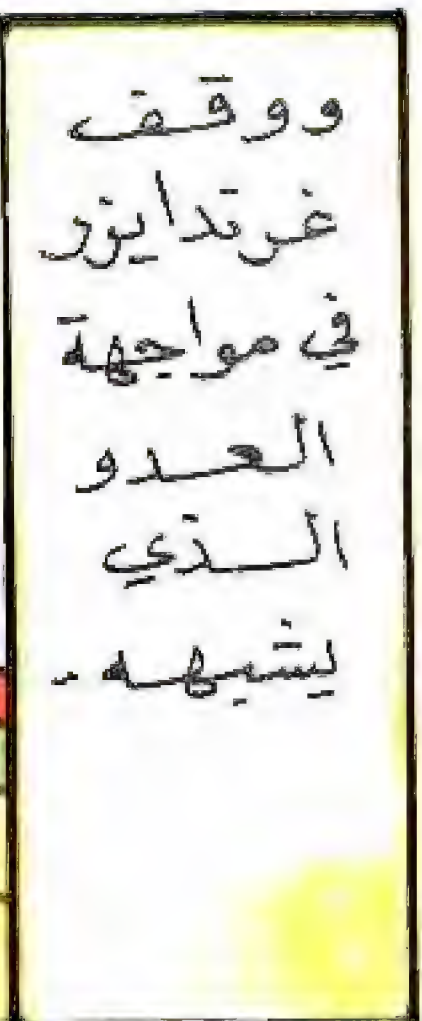 ووقف
غرندايزر
في مواجهة
العدو
الذي
يشبهه .